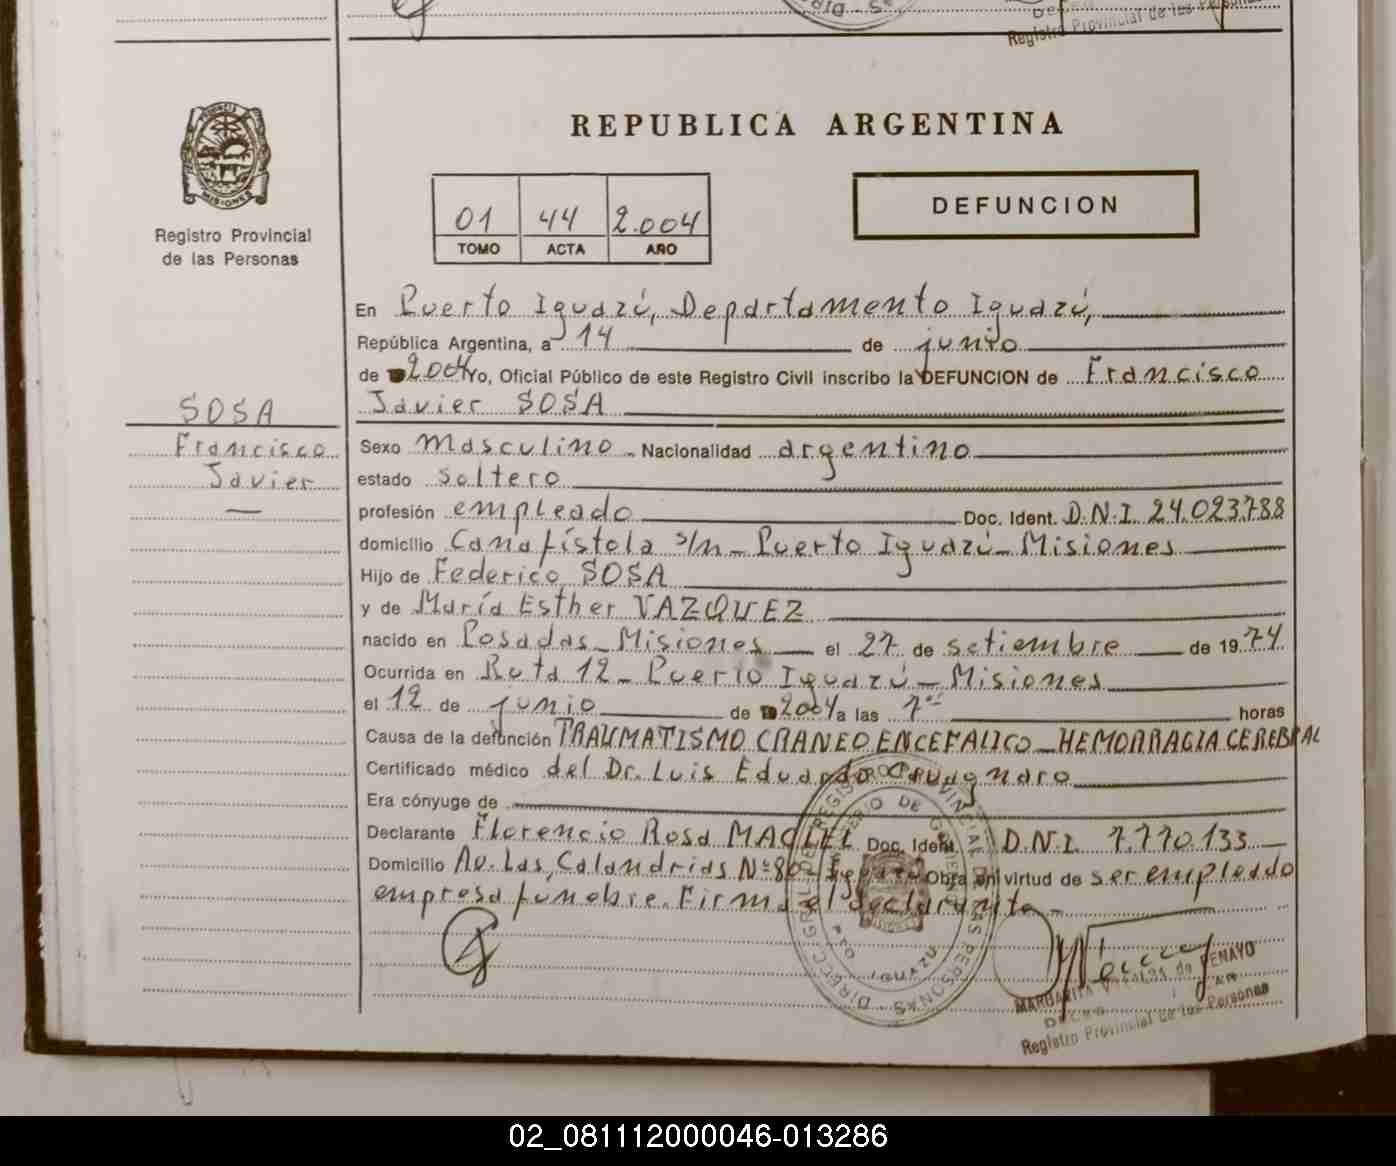 Registro Provincial de las Personas
REPUBLICA ARGENTINA
MISIONES
Registro Provincial
de las Personas
01 44 2.004
TOMO ACTA AÑO
DEFUNCION
En Puerto Iguazú, Departamento Iguazú,
República Argentina, a 14 de junio
de 2004 Yo, Oficial Público de este Registro Civil inscribo la DEFUNCION de Francisco
Javier SOSA
SOSA
Francisco
Javier
—
Sexo masculino Nacionalidad argentino
estado soltero
profesión empleado Doc. Ident. D.N.I. 24.023.788
domicilio Cañafístola s/n - Puerto Iguazú - Misiones
Hijo de Federico SOSA
y de María Esther VAZQUEZ
nacido en Posadas - Misiones el 27 de setiembre de 1974
Ocurrida en Ruta 12 - Puerto Iguazú - Misiones
el 12 de junio de 2004 a las horas
Causa de la defunción TRAUMATISMO CRANEO ENCEFALICO - HEMORRAGIA CEREBRAL
Certificado médico del Dr. Luis Eduardo
Era cónyuge de
Declarante Florencio Rosa MACIEL Doc. Ident. D.N.I. 7.770.133
Domicilio Av. Las Calandrias Nº 80 - Iguazú Obra en virtud de ser empleado
empresa fúnebre. Firma el declarante
DIRECC. GRAL. DEL REGISTRO PROVINCIAL DE LAS PERSONAS
MINISTERIO DE GOBIERNO
IGUAZU
MARGARITA de PENAYO
Registro Provincial de las Personas
02_081112000046-013286